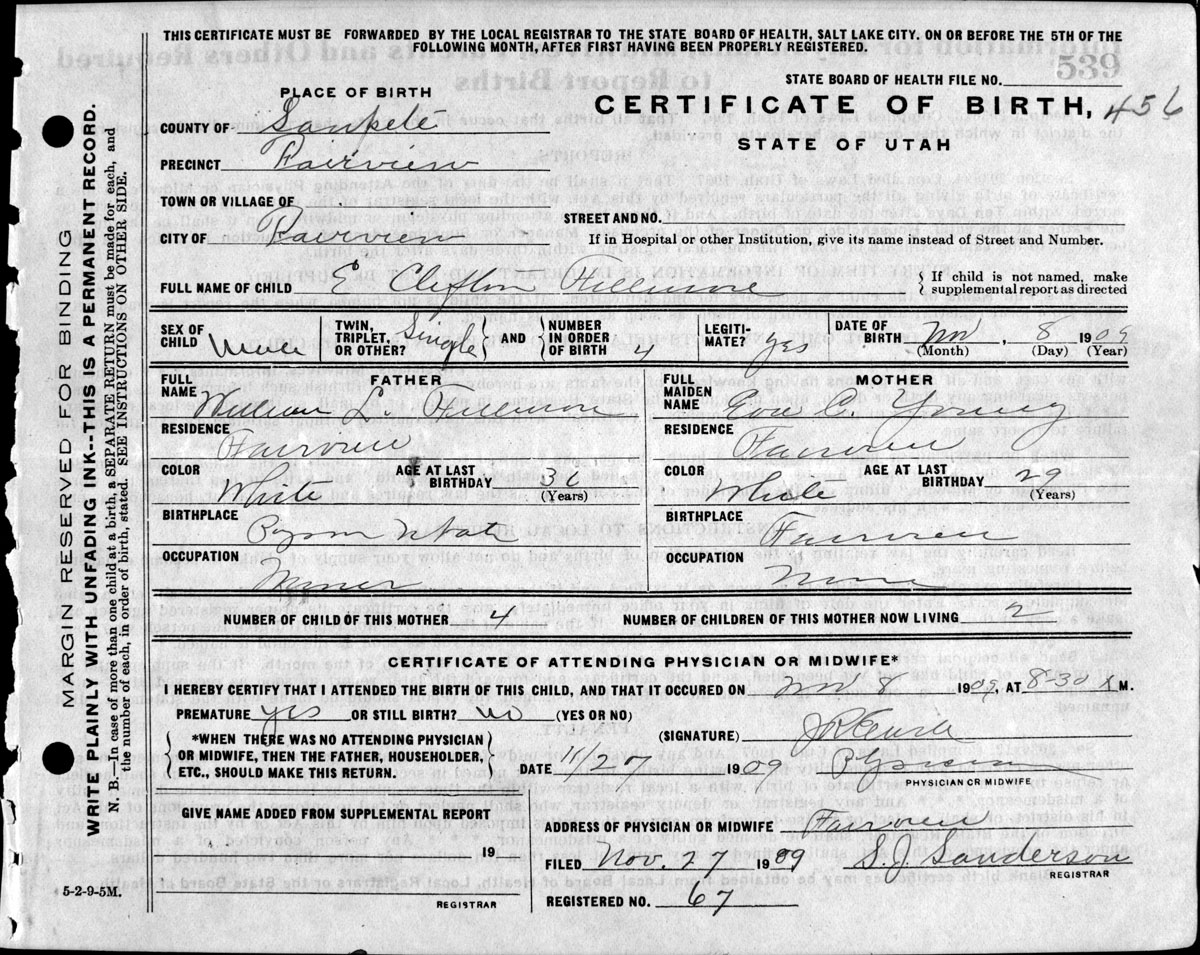 THIS CERTIFICATE MUST BE FORWARDED BY THE LOCAL REGISTRAR TO THE STATE BOARD OF HEALTH, SALT LAKE CITY. ON OR BEFORE THE 5TH OF THE
FOLLOWING MONTH, AFTER FIRST HAVING BEEN PROPERLY REGISTERED.
539
STATE BOARD OF HEALTH FILE NO.
PLACE OF BIRTH
CERTIFICATE OF BIRTH, 456
STATE OF UTAH
COUNTY OF Sanpete
PRECINCT Fairview
TOWN OR VILLAGE OF
STREET AND NO.
CITY OF Fairview
If in Hospital or other Institution, give its name instead of Street and Number.
FULL NAME OF CHILD E Clifton Fillmore
If child is not named, make
supplemental report as directed
SEX OF CHILD Male
TWIN, TRIPLET, OR OTHER? Single
AND
NUMBER IN ORDER OF BIRTH 4
LEGITIMATE? yes
DATE OF BIRTH Nov, 8 1909
(Month) (Day) (Year)
FATHER
FULL NAME William L. Fillmore
RESIDENCE
Fairview
COLOR White
AGE AT LAST BIRTHDAY
(Years)
BIRTHPLACE
Utah
OCCUPATION
MOTHER
FULL MAIDEN NAME Eva C. Young
RESIDENCE
Fairview
COLOR White
AGE AT LAST BIRTHDAY 29
(Years)
BIRTHPLACE
Fairview
OCCUPATION
None
NUMBER OF CHILD OF THIS MOTHER 4
NUMBER OF CHILDREN OF THIS MOTHER NOW LIVING 2
CERTIFICATE OF ATTENDING PHYSICIAN OR MIDWIFE*
I HEREBY CERTIFY THAT I ATTENDED THE BIRTH OF THIS CHILD, AND THAT IT OCCURED ON Nov 8 1909, AT 8-30 M.
PREMATURE yes OR STILL BIRTH? no (YES OR NO)
*WHEN THERE WAS NO ATTENDING PHYSICIAN
OR MIDWIFE, THEN THE FATHER, HOUSEHOLDER,
ETC., SHOULD MAKE THIS RETURN.
(SIGNATURE)
DATE 11/27 1909
PHYSICIAN OR MIDWIFE
GIVE NAME ADDED FROM SUPPLEMENTAL REPORT
19
REGISTRAR
ADDRESS OF PHYSICIAN OR MIDWIFE Fairview
FILED Nov. 27 1909 S.J. Sanderson
REGISTRAR
REGISTERED NO. 67
5-2-9-5M.
MARGIN RESERVED FOR BINDING
WRITE PLAINLY WITH UNFADING INK--THIS IS A PERMANENT RECORD.
N. B.—In case of more than one child at a birth, a SEPARATE RETURN must be made for each, and
the number of each, in order of birth, stated. SEE INSTRUCTIONS ON OTHER SIDE.